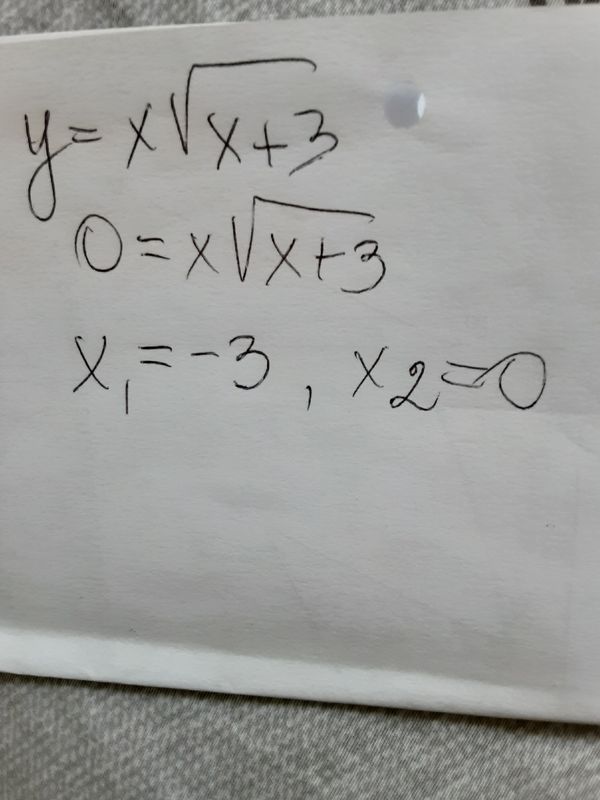 y = x√(x+3)
0 = x√(x+3)
x₁ = -3 , x₂ = 0